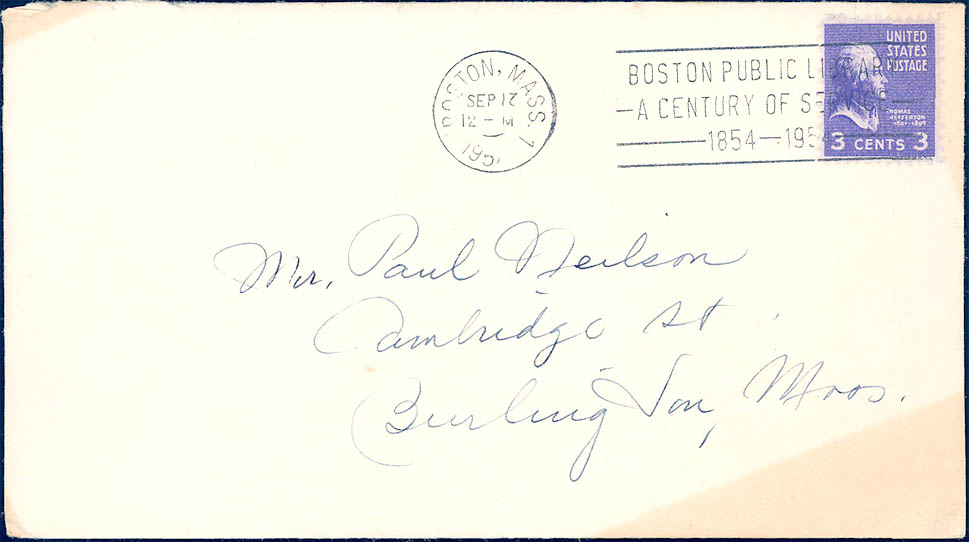 BOSTON, MASS. 1
SEP 17
12 - M
195
BOSTON PUBLIC LIBRARY
A CENTURY OF SERVICE
1854-1954
UNITED
STATES
POSTAGE
THOMAS
JEFFERSON
1801-1809
3 CENTS 3
Mr. Paul Neilson
Cambridge St.
Burlington, Mass.